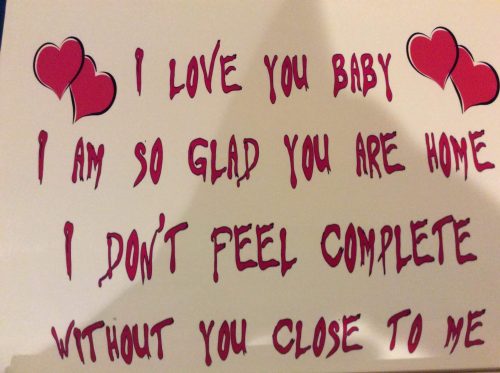 I LOVE YOU BABY
I AM SO GLAD YOU ARE HOME
I DON'T FEEL COMPLETE
WITHOUT YOU CLOSE TO ME